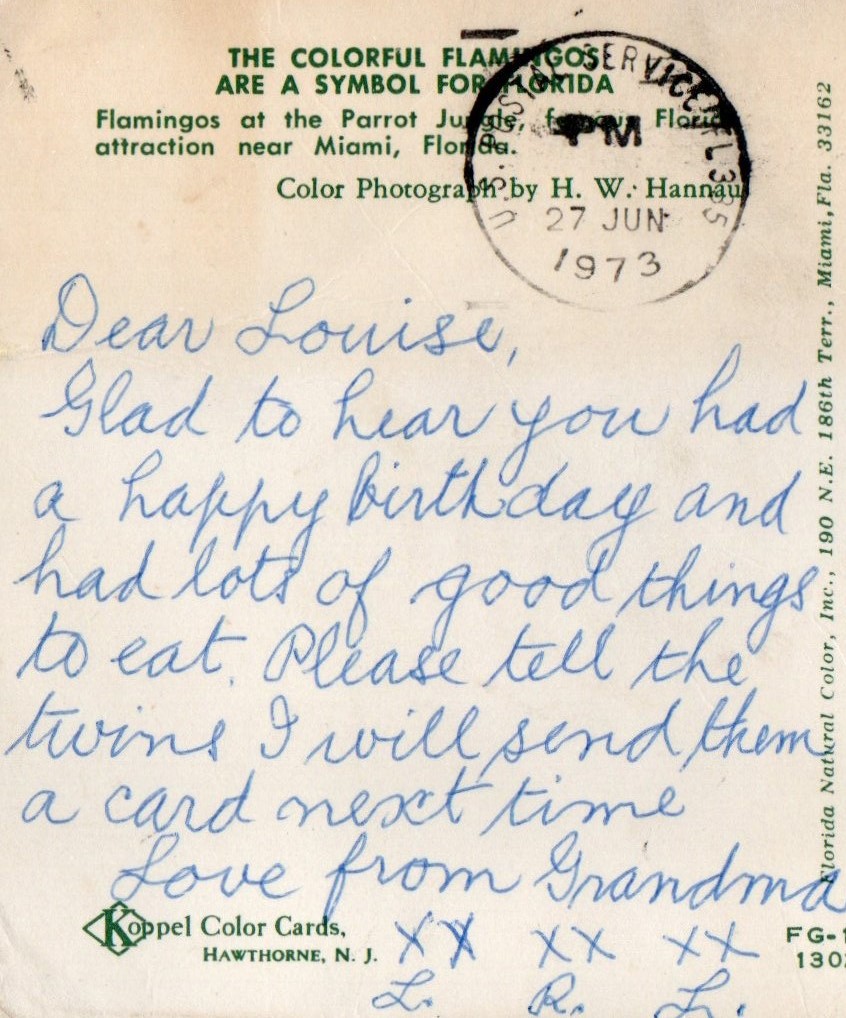 THE COLORFUL FLAMINGOS
ARE A SYMBOL FOR FLORIDA
Flamingos at the Parrot Jungle, famous Florida
attraction near Miami, Florida.
Color Photograph by H. W. Hannau
U.S. POSTAL SERVICE, FL 335
PM
27 JUN
1973
Dear Louise,
Glad to hear you had
a happy birthday and
had lots of good things
to eat. Please tell the
twins I will send them
a card next time
Love from Grandma
XX XX XX
L. R. L.
Koppel Color Cards,
HAWTHORNE, N. J.
FG-1
130
Florida Natural Color, Inc., 190 N.E. 186th Terr., Miami, Fla. 33162